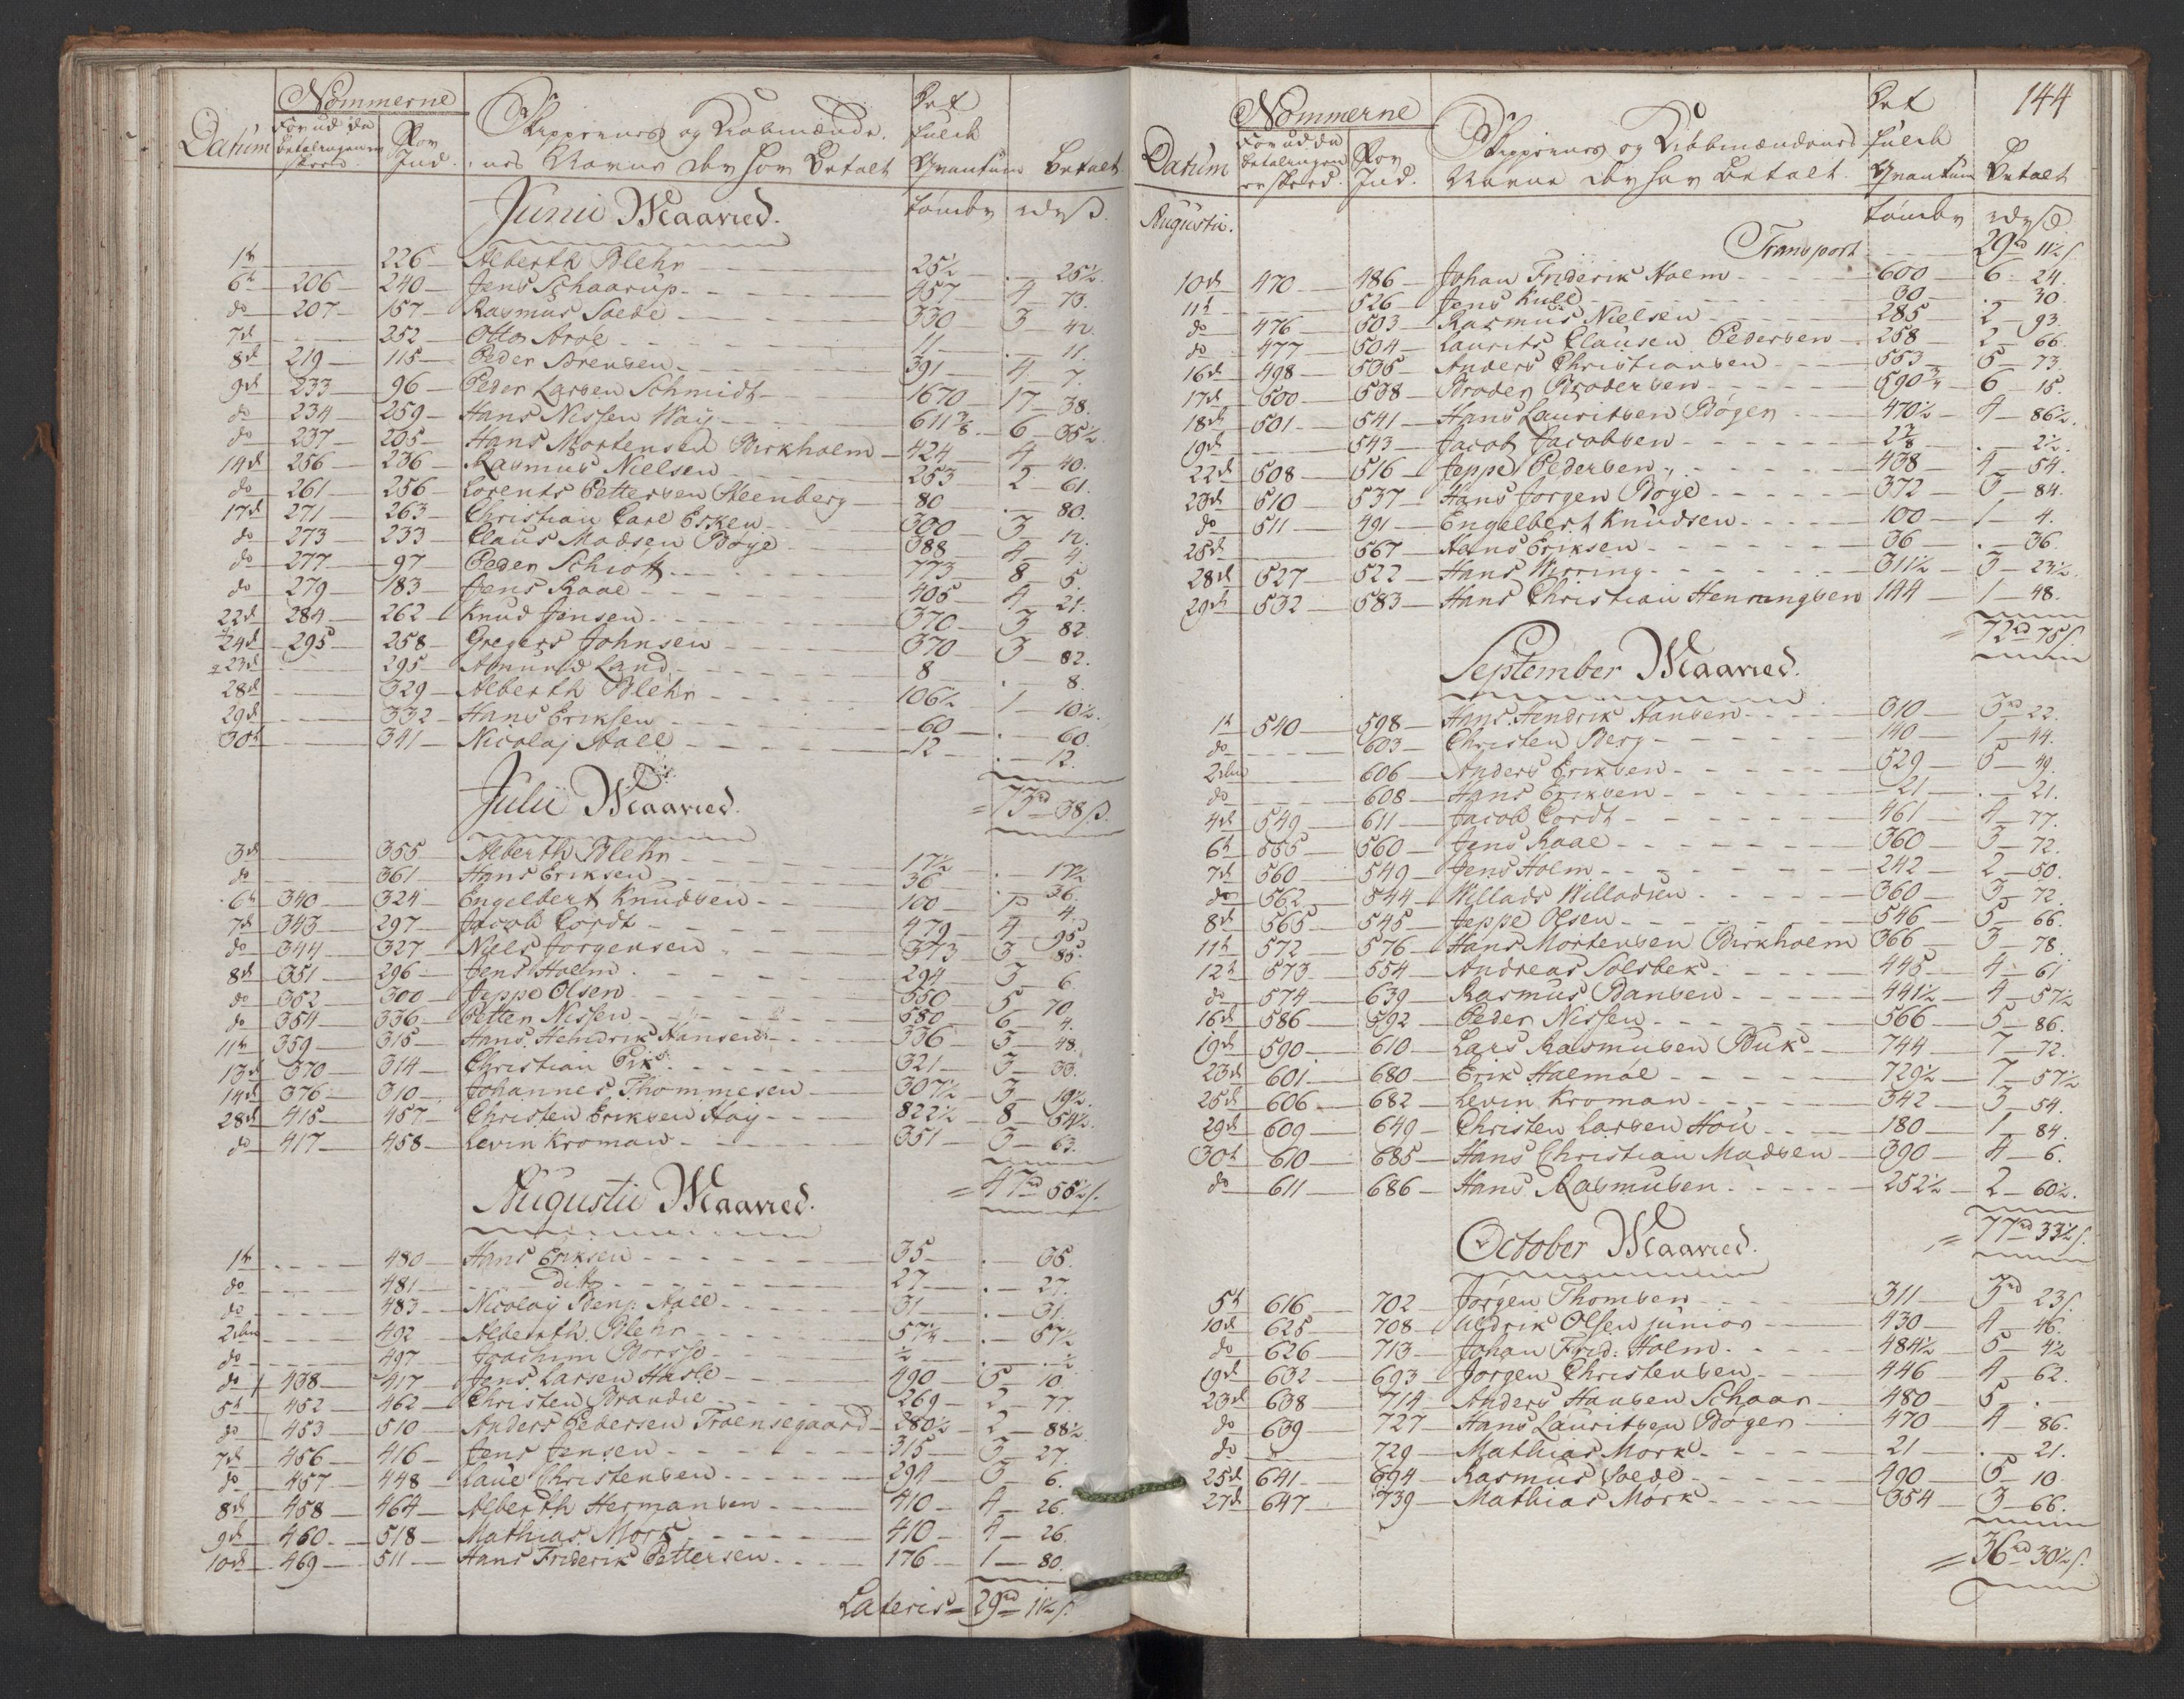 Datum
Nommerne
For ud da betalingen er skeed.
Por Ind.
Skippernes og Kiøbmænde-
nes Navne der har Betalt
Det fulde Quantum
Betalt
Junii Maaned.
tønder
rdr ß.
1t — 226 — Alberth Blehr — 25½ — . — 25½.
6t — 206 — 240 — Jens Schaarup — 457 — 4 — 73.
do — 207 — 157 — Rasmus Soede — 330 — 3 — 42.
7d — 252 — Otto Aroe — 11 — . — 11.
8d — 219 — 115 — Peder Sørensen — 391 — 4 — 7.
9d — 233 — 96 — Peder Larsen Schmidt — 1670 — 17 — 38.
do — 234 — 259 — Hans Nissen Høy — 611 3/8 — 6 — 35½.
do — 237 — 205 — Hans Mortensen Birkholm — 424 — 4 — 40.
14d — 256 — 236 — Rasmus Nielsen — 253 — 2 — 61.
do — 261 — 256 — Lorents Pettersen Steenberg — 80 — . — 80.
17d — 271 — 263 — Christian Carl Esken — 300 — 3 — 12.
do — 273 — 233 — Claus Madsen Bøye — 388 — 4 — 4.
do — 277 — 97 — Peder Schiøtt — 773 — 8 — 5.
do — 279 — 183 — Jens Raae — 405 — 4 — 21.
22d — 284 — 262 — Knud Jensen — 370 — 3 — 82.
24d — 295 — 258 — Gregers Johnsen — 370 — 3 — 82.
23d — 295 — Amund Land — 8 — . — 8.
28d — 329 — Alberth Blehr — 106½ — 1 — 10½.
29d — 332 — Hans Eriksen — 60 — . — 60.
30t — 341 — Nicolaj Aall — 12 — . — 12.
= 73rd 38ß.
Julii Maaned.
3d — 355 — Alberth Blehr — 17½ — . — 17½.
do — 361 — Hans Eriksen — 36 — . — 36.
6t — 340 — 324 — Engelbert Knudsen — 100 — 1 — 4.
7d — 343 — 297 — Jacob Cordt — 479 — 4 — 95.
do — 344 — 327 — Niels Jørgensen — 373 — 3 — 85.
8d — 351 — 296 — Jens Holm — 294 — 3 — 6.
do — 352 — 300 — Jeppe Olsen — 550 — 5 — 70.
do — 354 — 336 — Petter Nissen — 580 — 6 — 4.
11t — 359 — 315 — Hans Hendrik Hansen — 336 — 3 — 48.
13d — 370 — 314 — Christian Erks — 321 — 3 — 33.
14d — 376 — 310 — Johannes Thommesen — 307½ — 3 — 19½.
28d — 415 — 457 — Christen Eriksen Høy — 822½ — 8 — 54½.
do — 417 — 458 — Levin Kroman — 351 — 3 — 63.
= 47rd 55½ß.
Augustii Maaned.
1t — 480 — Hans Eriksen — 35 — . — 35.
do — 481 — ditto — 27 — . — 27.
do — 483 — Nicolay Benj: Aall — 31 — . — 31.
2den — 492 — Alberth Blehr — 57¼ — . — 57½
do — 497 — Joachim Borsse — ½ — . — ½
do — 438 — 417 — Jens Larsen Hasle — 490 — 5 — 10.
5t — 452 — 462 — Christen Brandie — 269 — 2 — 77.
do — 453 — 510 — Anders Pedersen Troensegaard — 280½ — 2 — 88½.
7d — 456 — 416 — Jens Jensen — 315 — 3 — 27.
do — 457 — 448 — Laue Christensen — 294 — 3 — 6.
8d — 458 — 464 — Alberth Hermansen — 410 — 4 — 26.
9d — 460 — 518 — Mathias Mørk — 410 — 4 — 26.
10d — 469 — 511 — Hans Friderik Pettersen — 176 — 1 — 80.
Lateris = 29rd 11½ß.
144
Datum
Nommerne
For ud da betalingen er skeed.
Por Ind.
Skippernes og Kiøbmændenes
Navne der har Betalt.
Det fulde Quantum
Betalt
Augustii.
tønder
rdr ß
Transport — 29rd 11½ß.
10d — 470 — 486 — Johan Friderik Holm — 600 — 6 — 24.
11t — 526 — Jens Kull — 30 — . — 30.
do — 476 — 503 — Rasmus Nielsen — 285 — 2 — 93.
do — 477 — 504 — Laurits Clausen Pedersen — 258 — 2 — 66.
16d — 498 — 535 — Anders Christiansen — 553 — 5 — 73.
17d — 500 — 538 — Broder Brodersen — 590¾ — 6 — 15.
18d — 501 — 541 — Hans Lauritsen Bøger — 470½ — 4 — 86½.
19d — 543 — Jacob Jacobsen — 2 3/8 — . — 2½.
22d — 508 — 516 — Jeppe Pedersen — 438 — 4 — 54.
23d — 510 — 537 — Hans Jørgen Bøye — 372 — 3 — 84.
do — 511 — 491 — Engelbert Knudsen — 100 — 1 — 4.
25d — 567 — Hans Eriksen — 36 — . — 36.
28d — 527 — 522 — Hans Wirring — 311½ — 3 — 23½.
29d — 532 — 583 — Hans Christian Henningsen — 144 — 1 — 48.
= 72rd 75ß.
September Maaned.
1t — 540 — 598 — Hans Hendrik Hansen — 310 — 3rd 22.
do — 603 — Christen Berg — 140 — 1 — 44.
2den — 606 — Anders Eriksen — 529 — 5 — 49.
do — 608 — Hans Eriksen — 21 — . — 21.
4d — 549 — 611 — Jacob Cordt — 461 — 4 — 77.
6t — 555 — 560 — Jens Raae — 360 — 3 — 72.
7d — 560 — 549 — Jens Holm — 242 — 2 — 50.
do — 562 — 544 — Willads Willadsen — 360 — 3 — 72.
8d — 565 — 545 — Jeppe Olsen — 546 — 5 — 66.
11t — 572 — 576 — Hans Mortensen Birkholm — 366 — 3 — 78.
12t — 573 — 554 — Andreas Solsbek — 445 — 4 — 61
do — 574 — 639 — Rasmus Bansen — 441½ — 4 — 57½
16d — 586 — 592 — Peder Nissen — 566 — 5 — 86.
19d — 590 — 610 — Lars Rasmusen Buk — 744 — 7 — 72.
23d — 601 — 680 — Erik Halmøe — 729½ — 7 — 57½
25d — 606 — 682 — Levin Kroman — 342 — 3 — 54.
29d — 609 — 649 — Christen Larsen Hou — 180 — 1 — 84.
30t — 610 — 685 — Hans Christian Madsen — 390 — 4 — 6.
do — 611 — 686 — Hans Rasmusen — 252½ — 2 — 60½.
= 77rd 33½ß.
October Maaned.
5t — 616 — 702 — Jørgen Thomsen — 311 — 3rd 23ß.
10d — 625 — 708 — Uldrik Olsen junior — 430 — 4 — 46.
do — 626 — 713 — Johan Frid: Holm — 484½ — 5 — 4½
19d — 632 — 693 — Jørgen Christensen — 446 — 4 — 62.
23d — 638 — 714 — Anders Hansen Schaar — 480 — 5 — .
do — 639 — 727 — Hans Lauritsen Bøger — 470 — 4 — 86.
do — 729 — Mathias Mørk — 21 — . — 21.
25d — 641 — 694 — Rasmus Soede — 490 — 5 — 10.
27d — 647 — 739 — Mathias Mørk — 354 — 3 — 66.
= 36rd 30½ß.